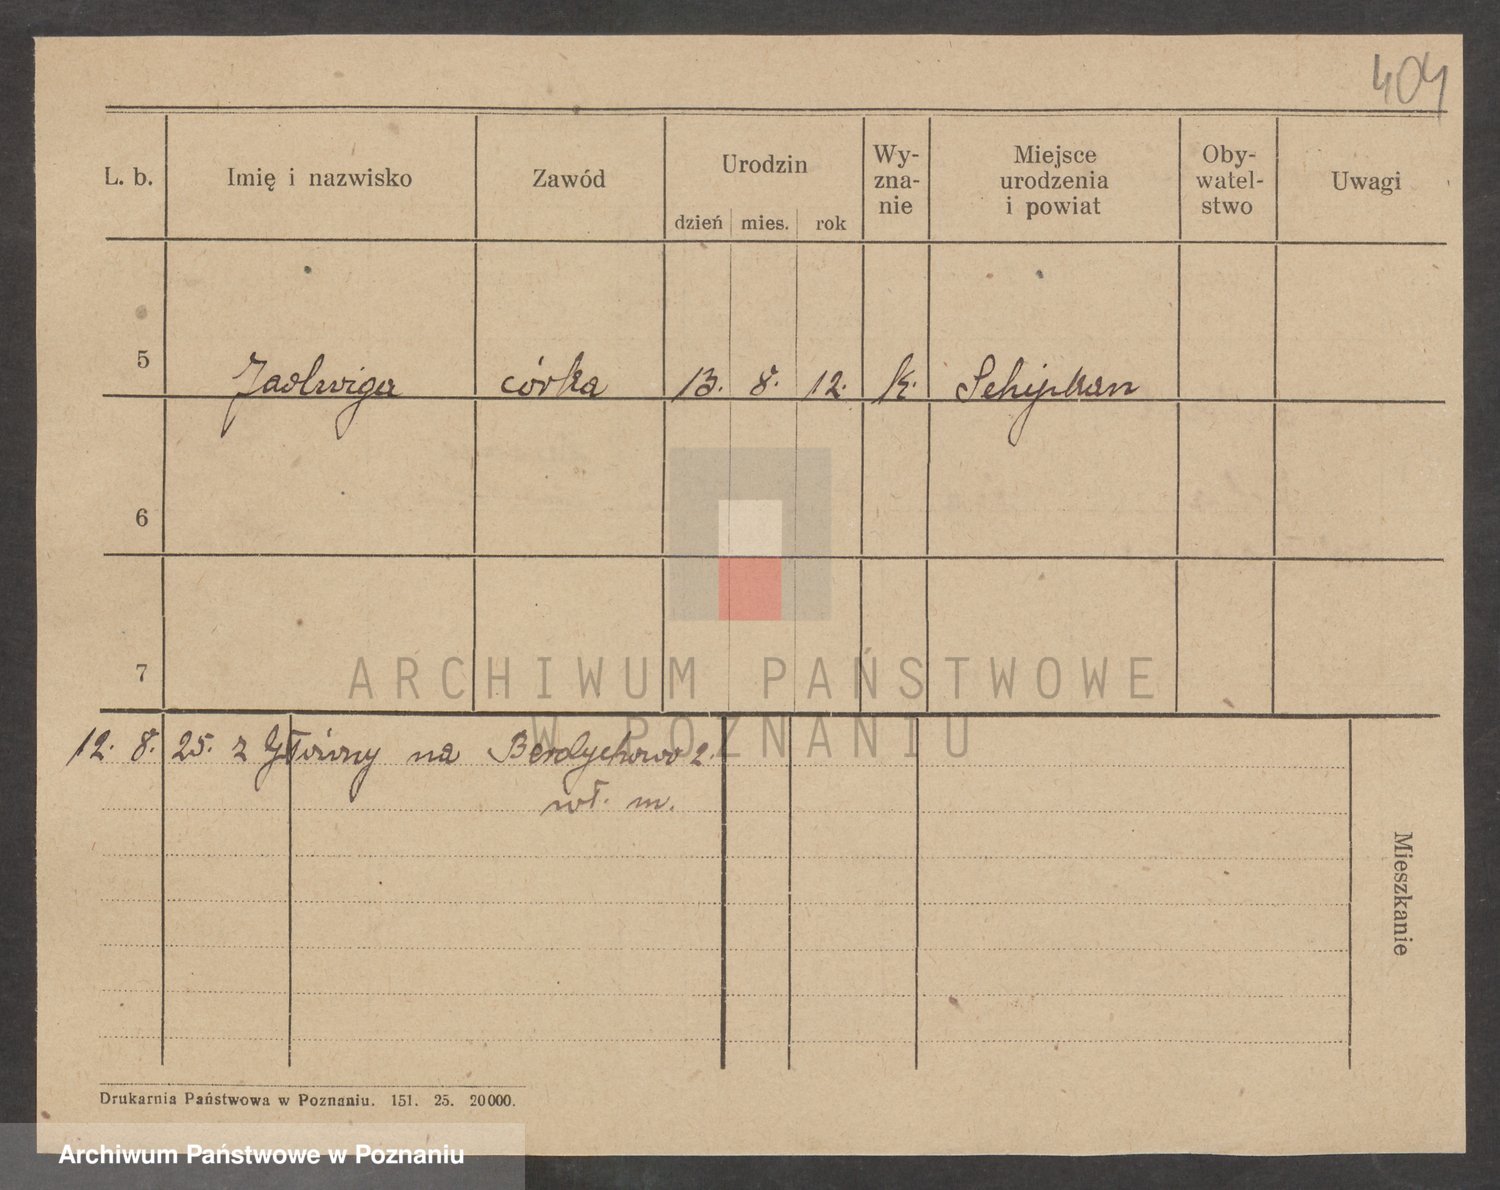 404
L. b. Imię i nazwisko Zawód Urodzin Wy-zna-nie Miejsce urodzenia i powiat Oby-watel-stwo Uwagi
dzień mies. rok
5 Jadwiga córka 13. 8. 12. k. Schipkan
6
7
12. 8. 25. z Główny na Berdychowo 2.
wł. m.
Mieszkanie
Drukarnia Państwowa w Poznaniu. 151. 25. 20000.
ARCHIWUM PAŃSTWOWE
W POZNANIU
Archiwum Państwowe w Poznaniu